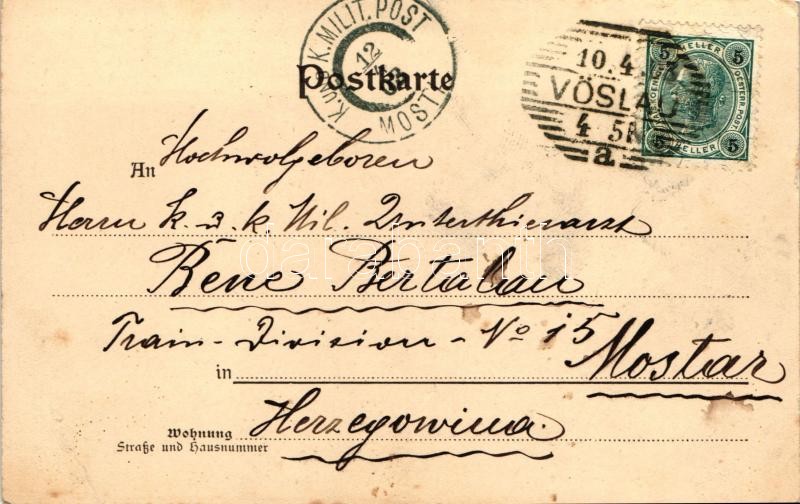 K. UND K. MILIT. POST
12
MOST
Postkarte
10.4
VÖSLAU
4 5
a
5 HELLER 5
OESTERR. POST.
5 HELLER 5
An Hochwolgeboren
Herrn k. u. k. Mil. Unterthierarzt
Bene Bertalan
Train-Division-No 15
in Mostar
Herzegowina.
Wohnung
Straße und Hausnummer
darabanth